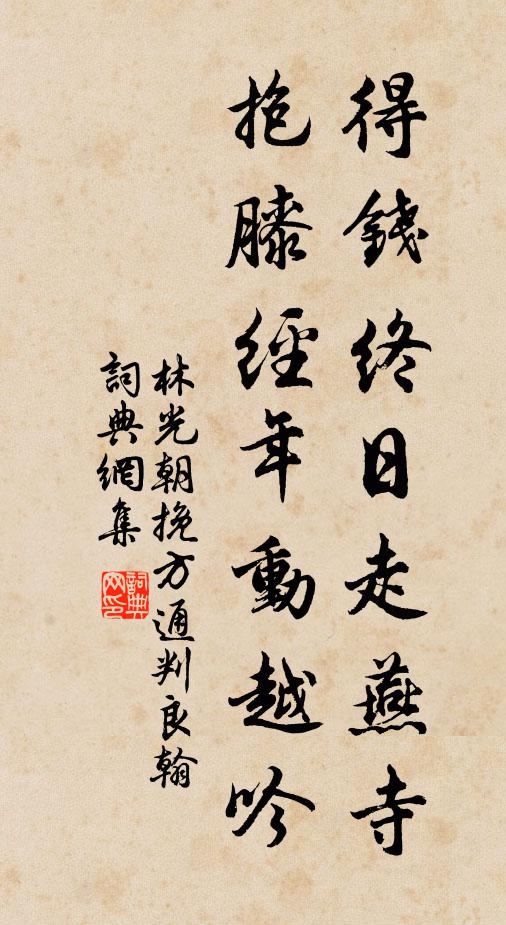 得錢終日走燕寺
抱膝經年動越吟
林光朝挽方通判良翰
詞典網集
詞典网印